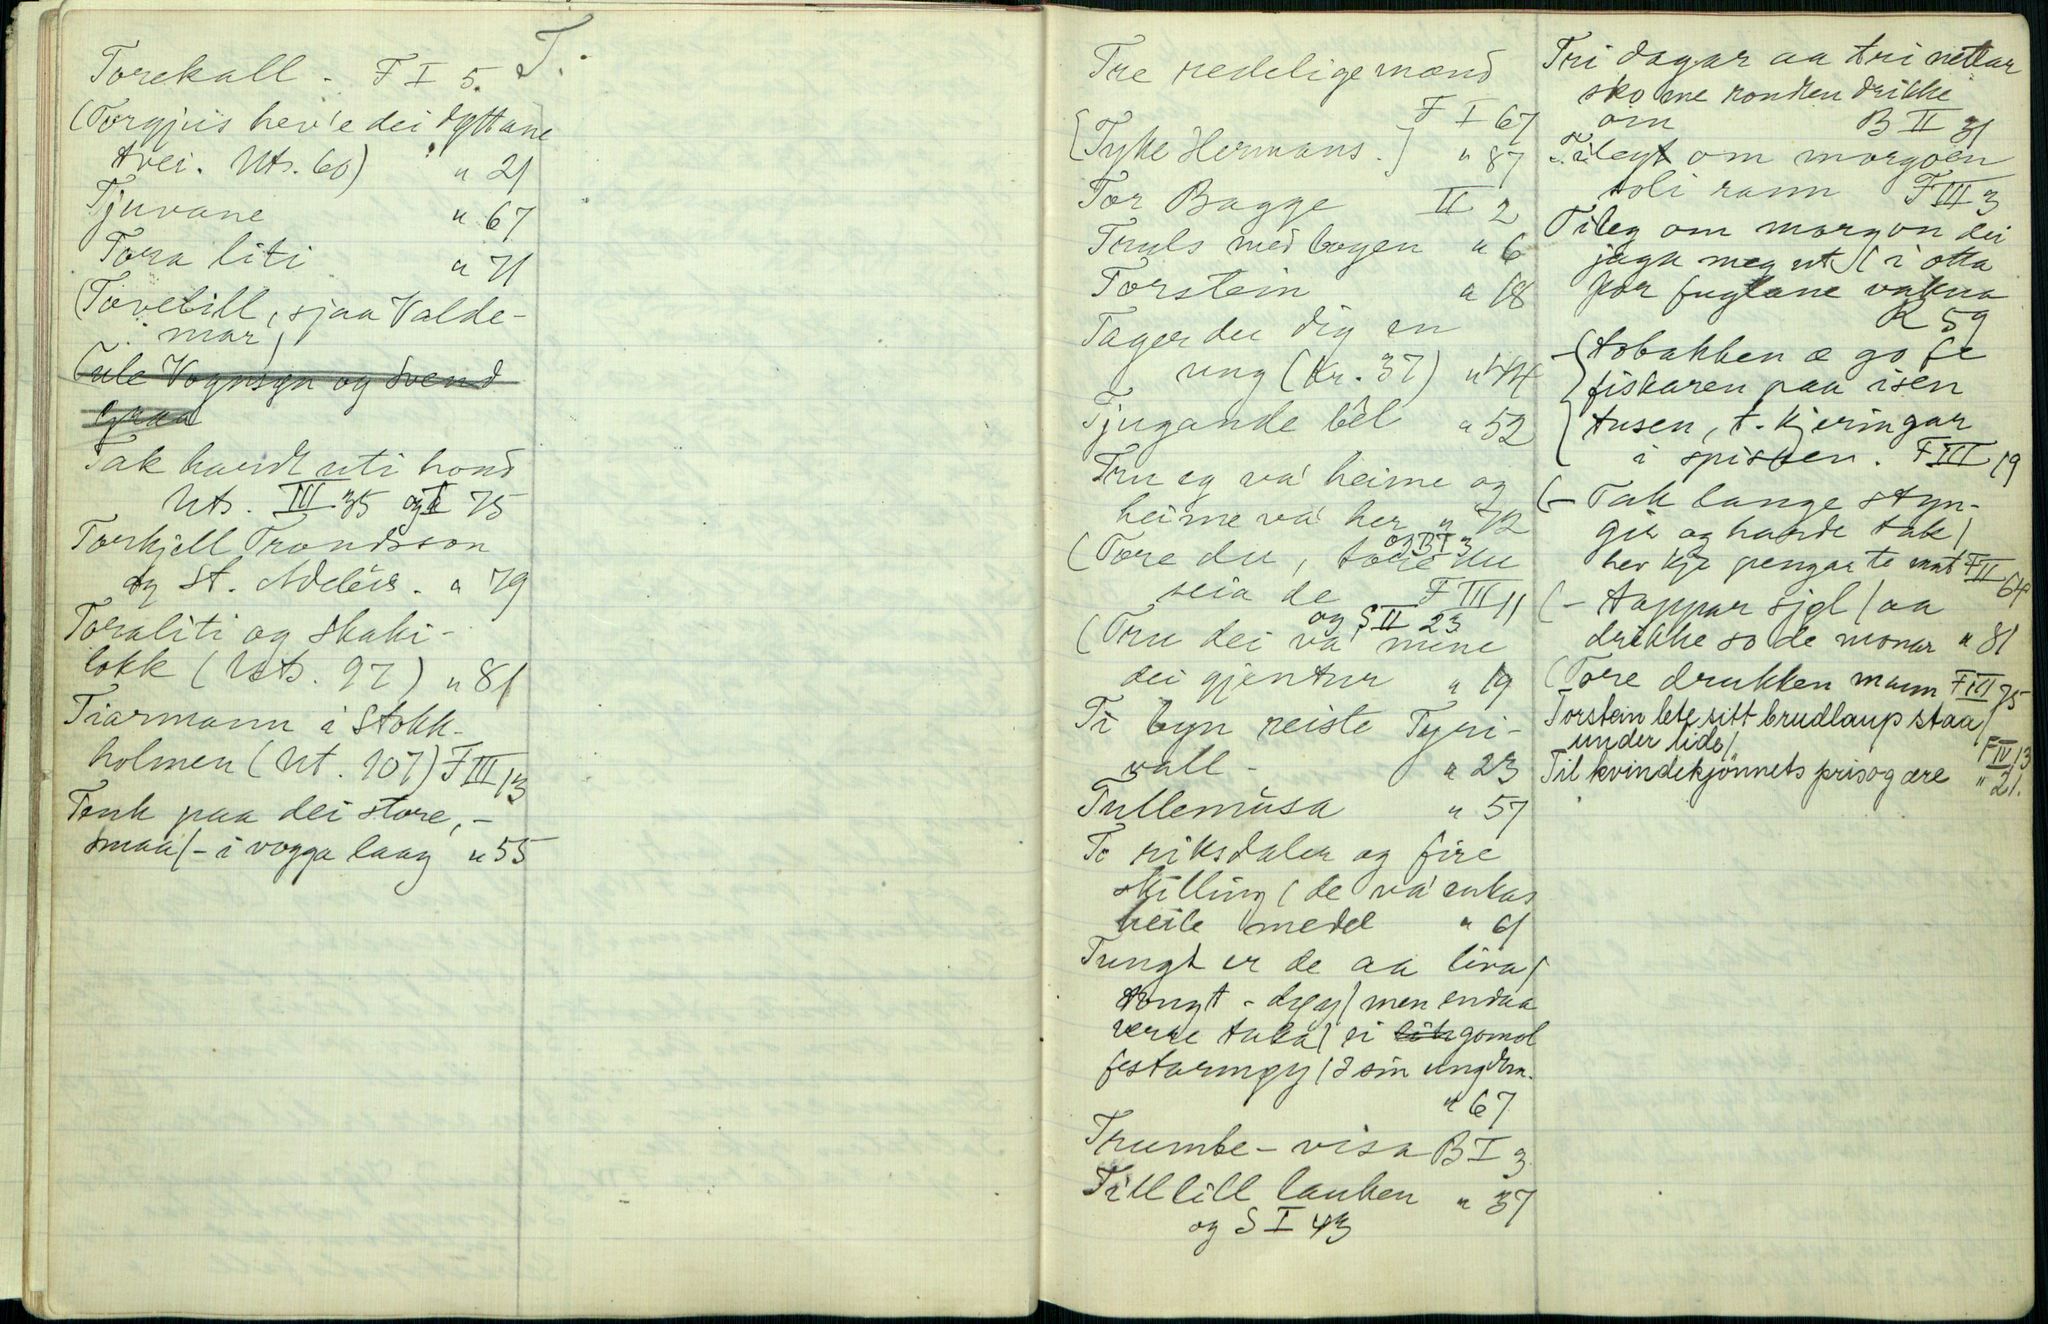 T.
Torekall - F I 5.
(Torgjus hev'e dei dyttane
tvei. Uts. 60) " 21
Tjuvane " 67
Tora liti " 71
(Tovelill, sjaa Valde-
mar)
Tule Vognsyn og Svend
graa
Tak handt uti hond
Uts. III 35 og I 75
Torkjell Trondsson
og St. Adelèis. " 79
Toraliti og Skaki-
lokk (Uts. 97) " 81
Tiarmann i Stokk-
holmen (Ut. 107) F III 13
Tenk paa dei store, -
smaa/- i vogga laag " 55
Tre redelige mænd
F I 67
[Tyke Hermans.] " 87
Tor Bagge II 2
Truls med bogen " 6
Torstein " 18
Tager du dig en
ung (Kr. 37) " 44
Tjugande bèl " 52
Tru eg va' heime og
heime va' her " 72
og B I 3
(Tore du, tore du
seia de F III 11
og S II 23
(Tru dei va' mine
dei gjentur " 19
Ti byn reiste Tyri-
vall - " 23
Tullemusa " 57
To riksdaler og fire
skilling / de va' enkas
heile medel " 61
Tungt er de aa liva /
tongt - døy / men endaa
verre taka / ei gomol
festarmøy / i sin ungdom.
" 67
Trumbe-visa B I 3
Till lill lauken " 37
og S I 43
Tri dagar aa tri nettar
sko me ronden drikke
om B II 31
Tileg om morgoen
soli rann F III 3
Tileg om morgon dei
jaga meg ut / i otta
for fuglane vakna
R 59
- { tobakken æ go fe
fiskaren paa isen
{ tusen, t. kjeringar
i spissen. F III 19
(- Tak lange styn-
gir og harde tak /
hev kje pengar te mat F II 64
(- tappar sjøl / aa
drikke so de monar " 81
(Tore drukken mann F III 75
Torstein lete sitt brudlaup staa /
under lide /. F IV 13
Til kvindekjønnets pris og ære " 21.